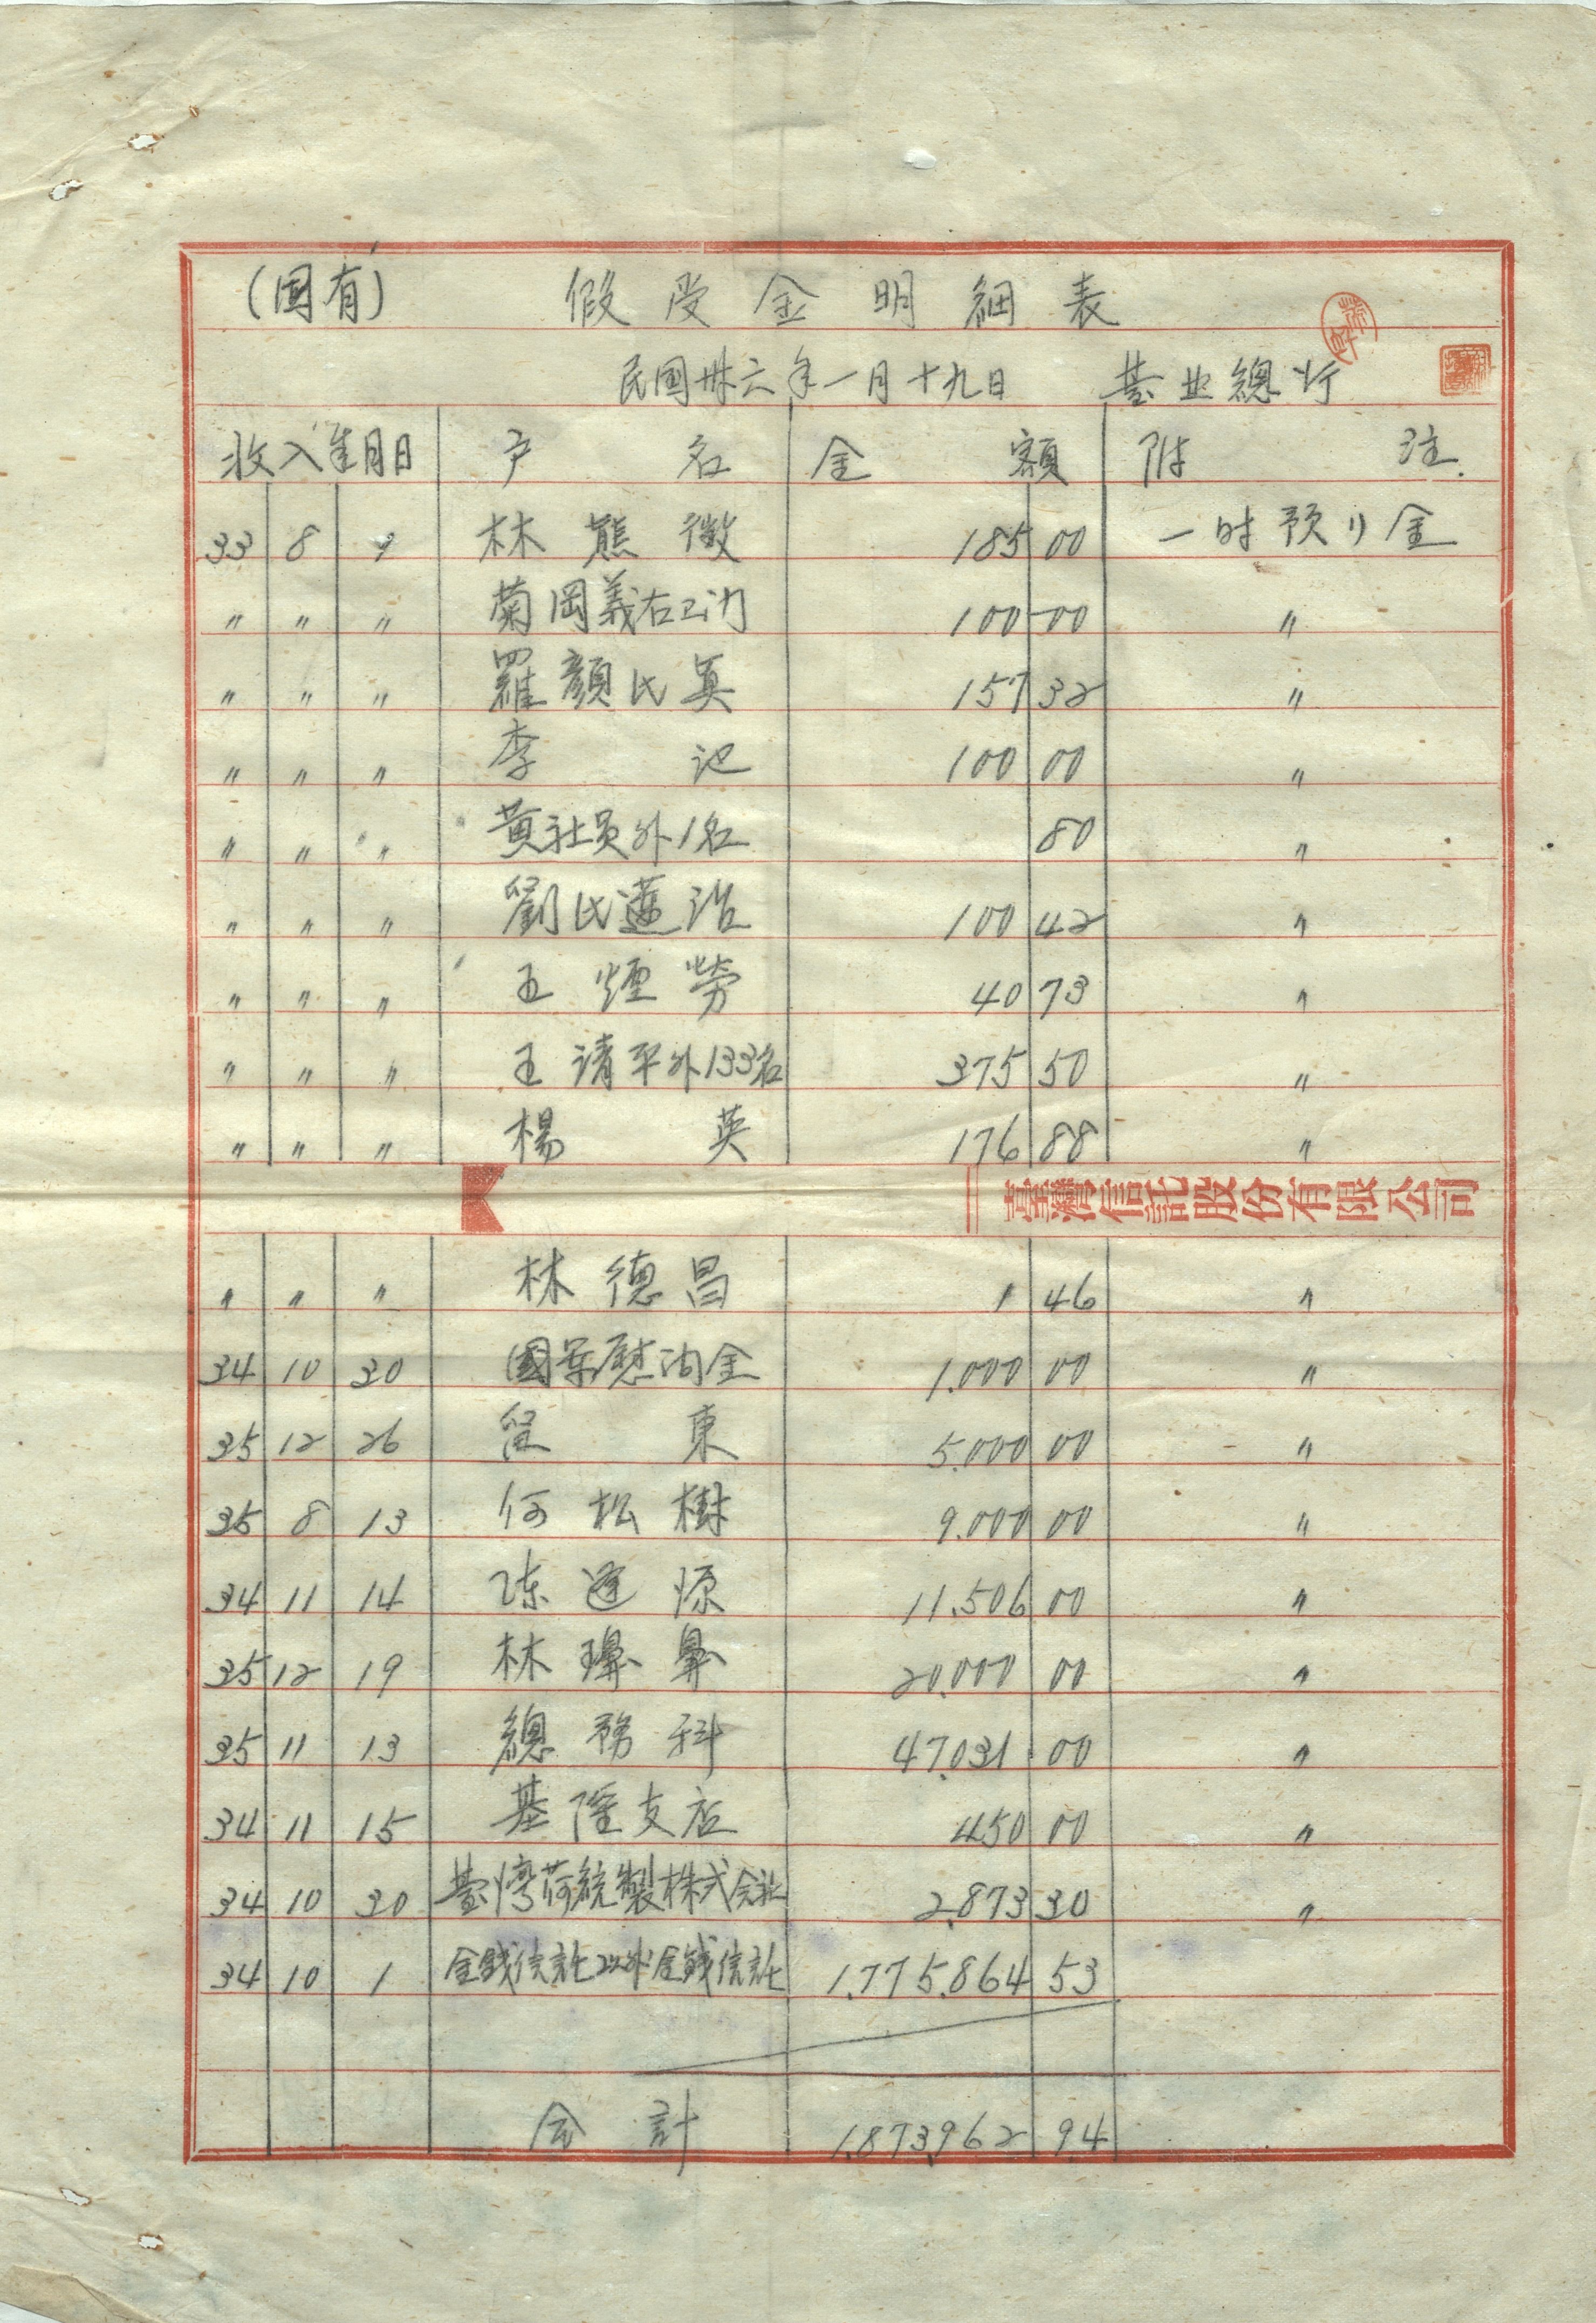 (固有) 假受金明細表
民國卅六年一月十九日 营业總行
收入年月日 户名 金額 附註
33 8 9 林熊徵 185 00 一时预り金
〃 〃 〃 菊岡義右卫门 100 00 〃
〃 〃 〃 羅顏氏真 157 32 〃
〃 〃 〃 李池 100 00 〃
〃 〃 〃 黄社員外1名 80 〃
〃 〃 〃 劉氏蓮治 100 42 〃
〃 〃 〃 王煙勞 40 73 〃
〃 〃 〃 王清平外133名 375 50 〃
〃 〃 〃 楊英 176 88 〃
臺灣信託股份有限公司
〃 〃 〃 林德昌 1 46 〃
34 10 30 國軍慰問金 1.000 00 〃
35 12 26 東 5.000 00 〃
35 8 13 何松樹 9.000 00 〃
34 11 14 陈逢源 11.506 00 〃
35 12 19 林 20.000 00 〃
35 11 13 總務科 47.031 00 〃
34 11 15 基隆支店 450 00 〃
34 10 30 臺湾荷統製株式会社 2.873 30 〃
34 10 1 金錢信託以外金錢信託 1.775.864 53
合計 1.873.962 94